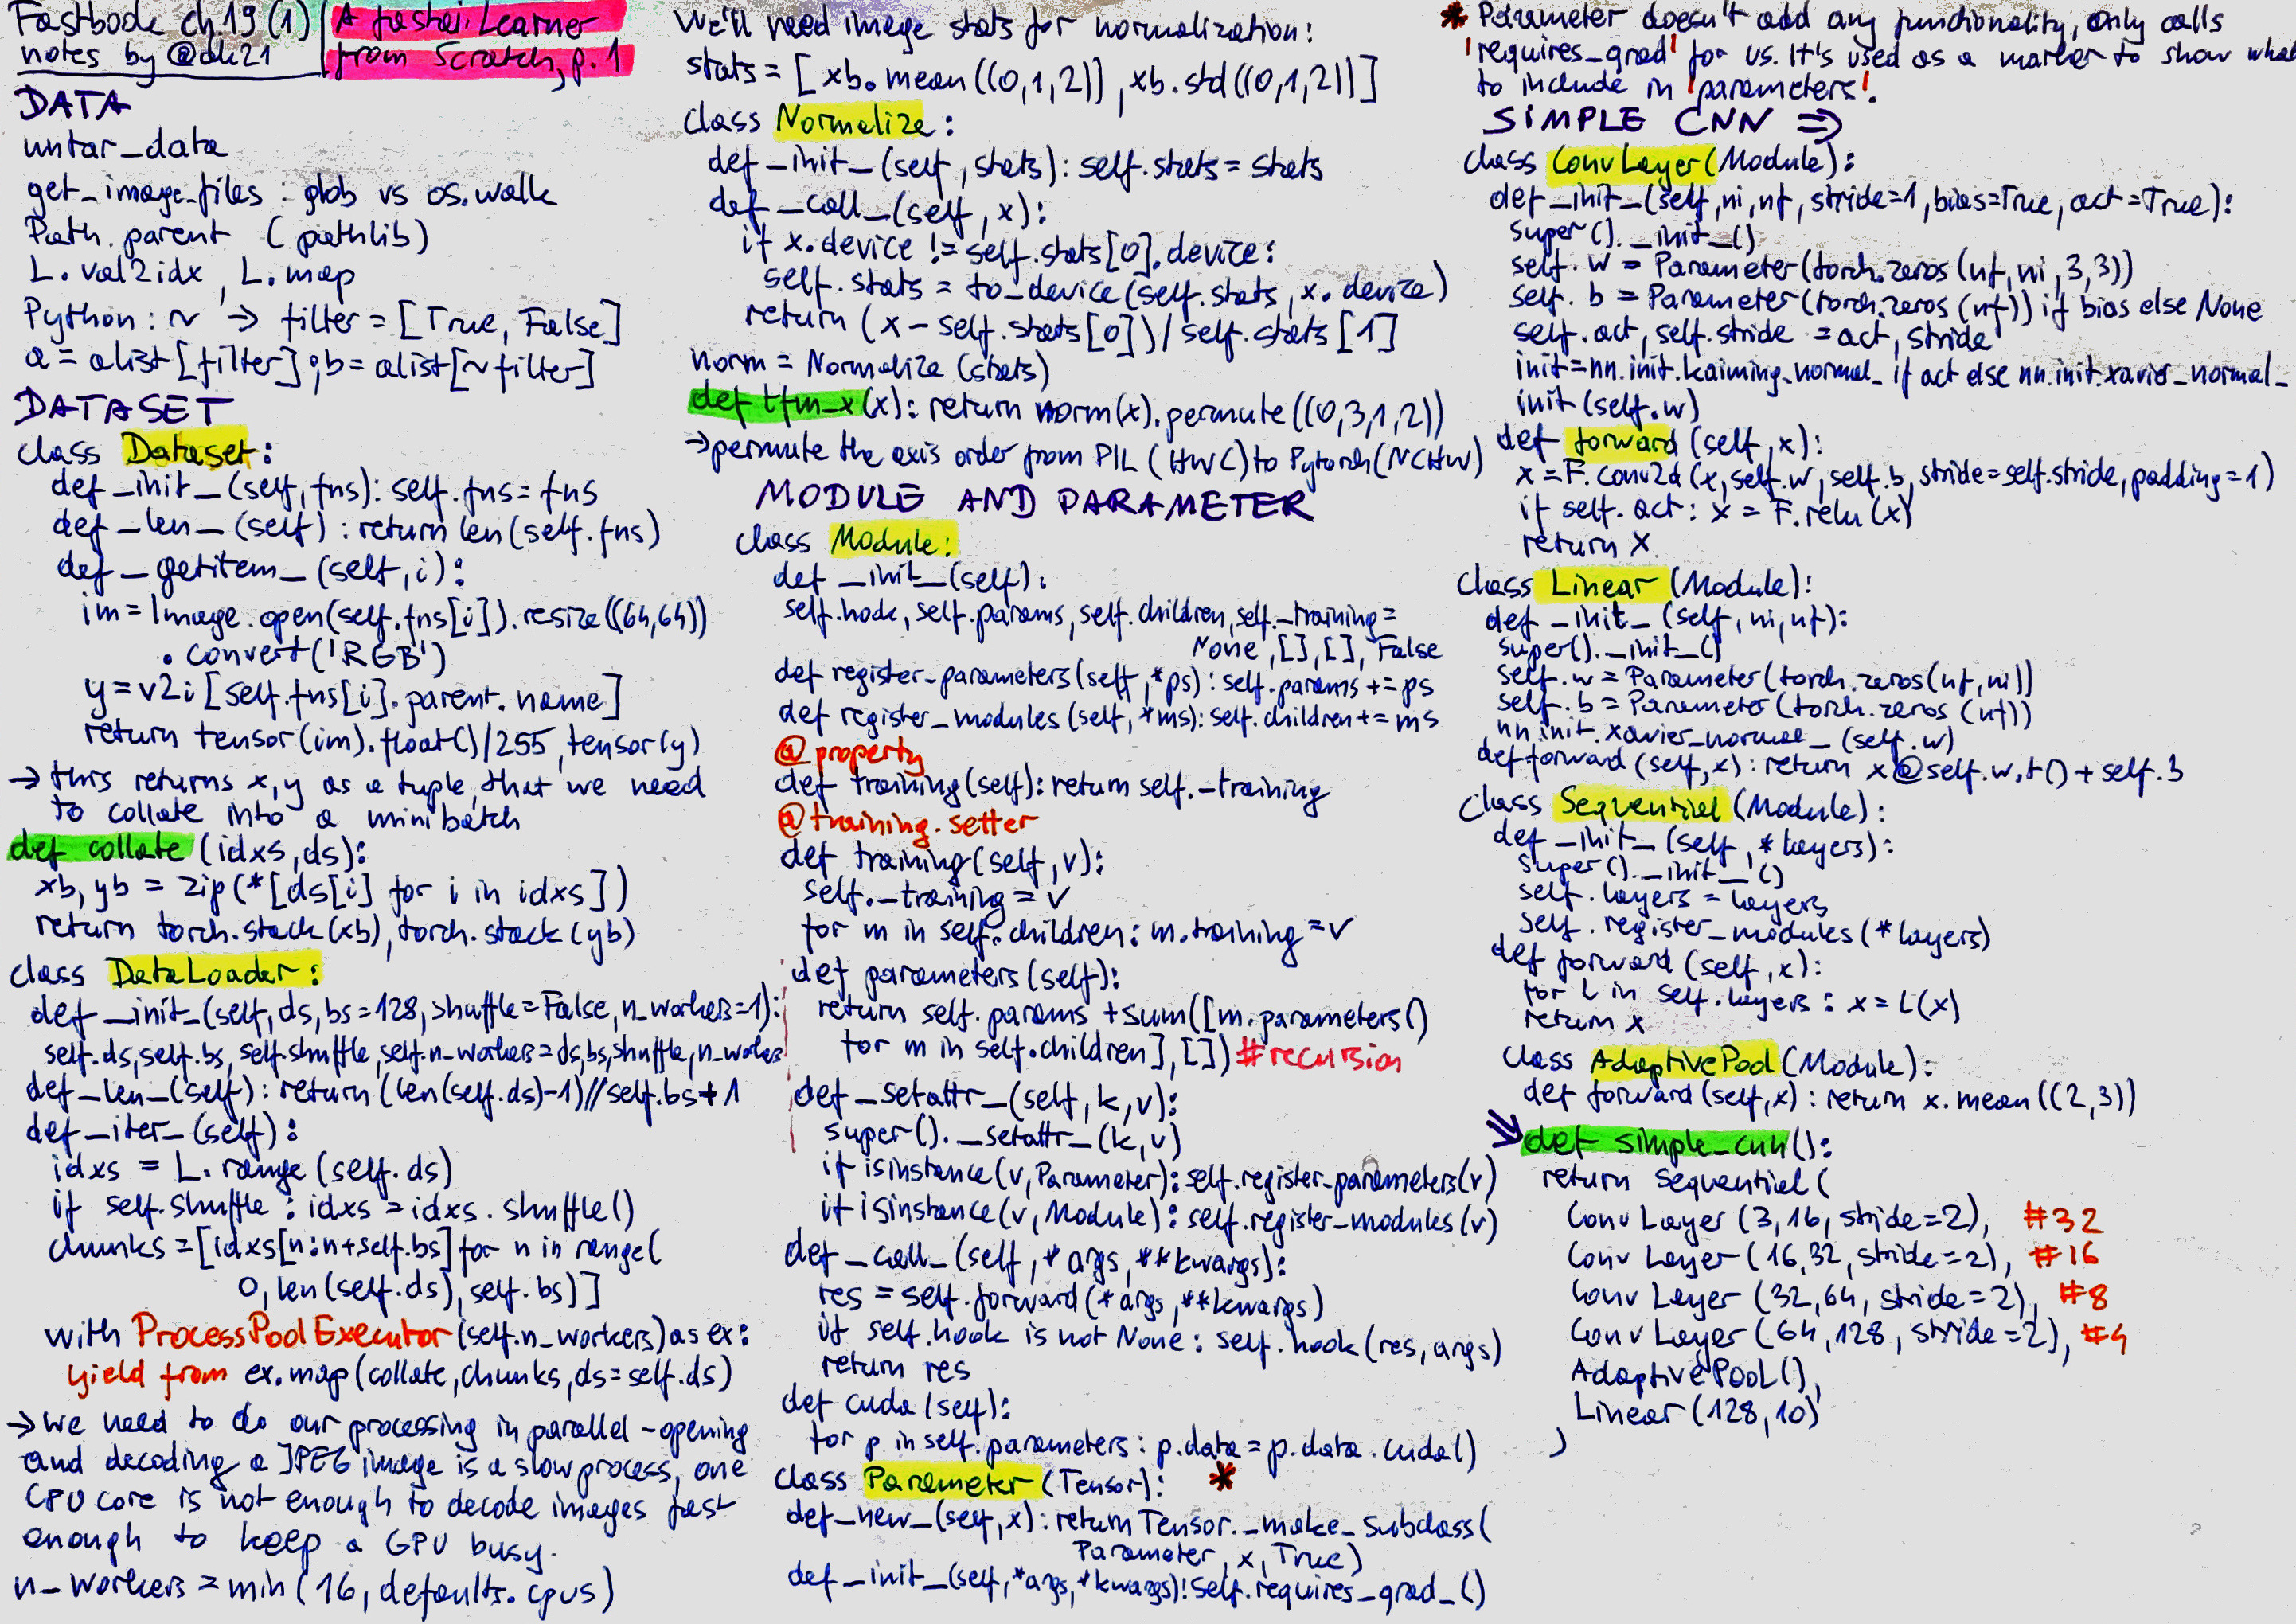 Fastbook ch.19 (1)
notes by @dk21
A fastai Learner
from Scratch, p. 1
DATA
untar_data
get_image_files : glob vs os.walk
Path.parent (pathlib)
L.val2idx, L.map
Python: ~ → filter = [True, False]
a = alist[filter]; b = alist[~filter]
DATASET
class Dataset:
def _init_(self, fns): self.fns = fns
def _len_(self): return len(self.fns)
def _getitem_(self, i):
im = Image.open(self.fns[i]).resize((64,64))
.convert('RGB')
y = v2i[self.fns[i].parent.name]
return tensor(im).float()/255, tensor(y)
→ this returns x,y as a tuple, that we need
to collate into a minibatch
def collate (idxs, ds):
xb, yb = zip(*[ds[i] for i in idxs])
return torch.stack(xb), torch.stack(yb)
class DataLoader:
def _init_(self, ds, bs=128, shuffle=False, n_workers=1):
self.ds, self.bs, self.shuffle, self.n_workers = ds, bs, shuffle, n_workers
def _len_(self): return (len(self.ds)-1)//self.bs+1
def _iter_(self):
idxs = L.range(self.ds)
if self.shuffle: idxs = idxs.shuffle()
chunks = [idxs[n:n+self.bs] for n in range(
0, len(self.ds), self.bs)]
with ProcessPoolExecutor(self.n_workers) as ex:
yield from ex.map(collate, chunks, ds=self.ds)
→ we need to do our processing in parallel - opening
and decoding a JPEG image is a slow process, one
CPU core is not enough to decode images fast
enough to keep a GPU busy.
n_workers = min(16, defaults.cpus)
We'll need image stats for normalization:
stats = [xb.mean((0,1,2)), xb.std((0,1,2))]
class Normalize:
def _init_(self, stats): self.stats = stats
def _call_(self, x):
if x.device != self.stats[0].device:
self.stats = to_device(self.stats, x.device)
return (x - self.stats[0])/self.stats[1]
norm = Normalize(stats)
def tfm_x(x): return norm(x).permute((0,3,1,2))
→ permute the axis order from PIL (HWC) to Pytorch (NCHW)
MODULE AND PARAMETER
class Module:
def _init_(self):
self.hook, self.params, self.children, self._training =
None, [], [], False
def register_parameters(self, *ps): self.params += ps
def register_modules(self, *ms): self.children += ms
@property
def training(self): return self._training
@training.setter
def training(self, v):
self._training = v
for m in self.children: m.training = v
def parameters(self):
return self.params + sum([m.parameters()
for m in self.children], []) #recursion
def _setattr_(self, k, v):
super()._setattr_(k, v)
if isinstance(v, Parameter): self.register_parameters(v)
if isinstance(v, Module): self.register_modules(v)
def _call_(self, *args, **kwargs):
res = self.forward(*args, **kwargs)
if self.hook is not None: self.hook(res, args)
return res
def cuda(self):
for p in self.parameters: p.data = p.data.cuda()
class Parameter(Tensor): *
def _new_(self, x): return Tensor._make_subclass(
Parameter, x, True)
def _init_(self, *args, *kwargs): self.requires_grad_()
* Parameter doesn't add any functionality, only calls
'requires_grad' for us. It's used as a marker to show what
to include in 'parameters'.
SIMPLE CNN ⇒
class ConvLayer(Module):
def _init_(self, ni, nf, stride=1, bias=True, act=True):
super()._init_()
self.w = Parameter(torch.zeros(nf, ni, 3, 3))
self.b = Parameter(torch.zeros(nf)) if bias else None
self.act, self.stride = act, stride
init = nn.init.kaiming_normal_ if act else nn.init.xavier_normal_
init(self.w)
def forward(self, x):
x = F.conv2d(x, self.w, self.b, stride=self.stride, padding=1)
if self.act: x = F.relu(x)
return x
class Linear(Module):
def _init_(self, ni, nf):
super()._init_()
self.w = Parameter(torch.zeros(nf, ni))
self.b = Parameter(torch.zeros(nf))
nn.init.xavier_normal_(self.w)
def forward(self, x): return x@self.w.t() + self.b
class Sequential(Module):
def _init_(self, *layers):
super()._init_()
self.layers = layers
self.register_modules(*layers)
def forward(self, x):
for L in self.layers: x = L(x)
return x
class AdaptivePool(Module):
def forward(self, x): return x.mean((2,3))
def simple_cnn():
return Sequential(
ConvLayer(3, 16, stride=2), #32
ConvLayer(16, 32, stride=2), #16
ConvLayer(32, 64, stride=2), #8
ConvLayer(64, 128, stride=2), #4
AdaptivePool(),
Linear(128, 10)
)